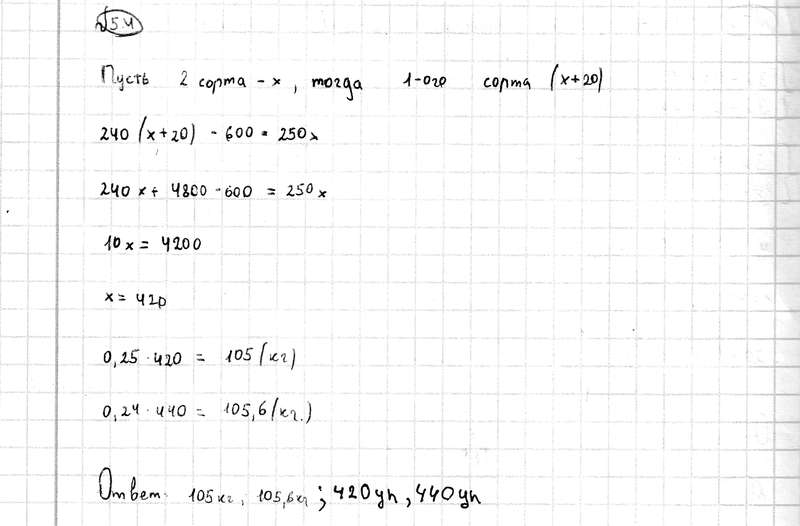 №54
Пусть 2 сорта - x, тогда 1-ого сорта (x+20)
240 (x+20) - 600 = 250x
240x + 4800 - 600 = 250x
10x = 4200
x = 420
0,25 · 420 = 105 (кг)
0,24 · 440 = 105,6 (кг.)
Ответ: 105 кг, 105,6 кг ; 420 уп, 440 уп